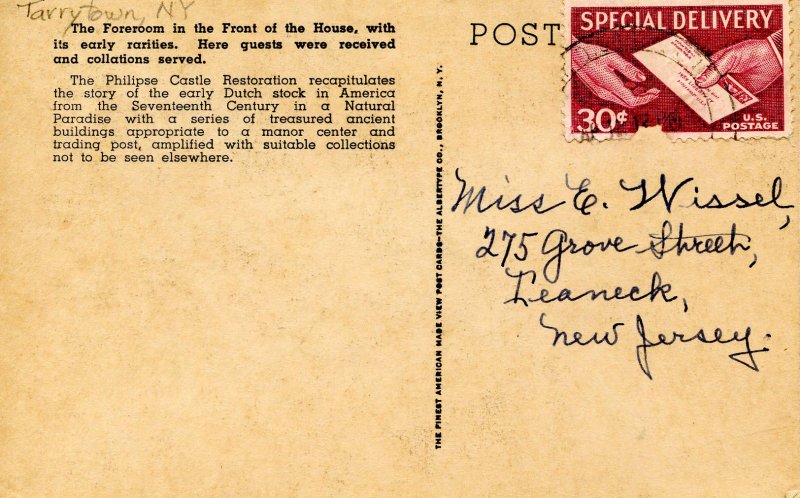 Tarrytown, NY
The Foreroom in the Front of the House, with
its early rarities. Here guests were received
and collations served.
The Philipse Castle Restoration recapitulates
the story of the early Dutch stock in America
from the Seventeenth Century in a Natural
Paradise with a series of treasured ancient
buildings appropriate to a manor center and
trading post, amplified with suitable collections
not to be seen elsewhere.
THE FINEST AMERICAN MADE VIEW POST CARDS—THE ALBERTYPE CO., BROOKLYN, N. Y.
POST
SPECIAL DELIVERY
30¢
U.S.
POSTAGE
Miss E. Wissel,
275 Grove Street,
Teaneck,
New Jersey.